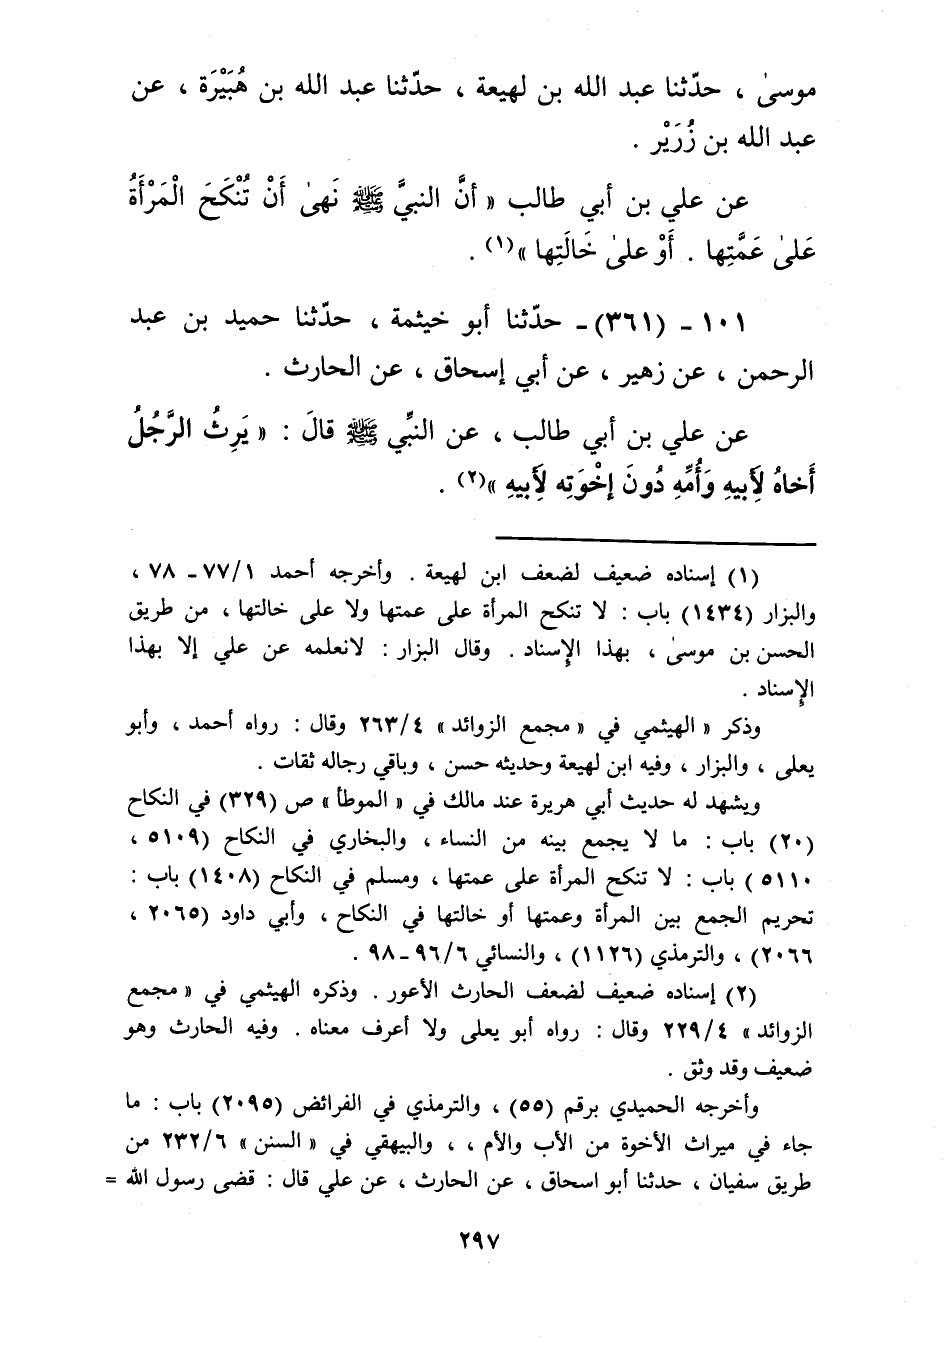 موسىٰ ، حدّثنا عبد الله بن لهيعة ، حدّثنا عبد الله بن هُبَيْرَة ، عن
عبد الله بن زُرَيْر .
عن علي بن أبي طالب « أنَّ النبيَّ ﷺ نَهىٰ أَنْ تُنْكَحَ الْمَرْأَةُ
عَلىٰ عَمَّتِها . أَوْ علىٰ خَالَتِها »(١) .
١٠١ ـ (٣٦١)ـ حدّثنا أبو خيثمة ، حدّثنا حميد بن عبد
الرحمن ، عن زهير ، عن أبي إسحاق ، عن الحارث .
عن علي بن أبي طالب ، عن النبِّي ﷺ قالَ : « يَرِثُ الرَّجُلُ
أَخاهُ لِأَبيهِ وَأُمِّهِ دُونَ إخْوَتِه لِأَبيهِ »(٢) .
(١) إسناده ضعيف لضعف ابن لهيعة . وأخرجه أحمد ٧٧/١ ـ ٧٨ ،
والبزار (١٤٣٤) باب : لا تنكح المرأة على عمتها ولا على خالتها ، من طريق
الحسن بن موسىٰ ، بهذا الإسناد . وقال البزار : لانعلمه عن علي إلا بهذا
الإسناد .
وذكر « الهيثمي في « مجمع الزوائد » ٢٦٣/٤ وقال : رواه أحمد ، وأبو
يعلى ، والبزار ، وفيه ابن لهيعة وحديثه حسن ، وباقي رجاله ثقات .
ويشهد له حديث أبي هريرة عند مالك في « الموطأ » ص (٣٢٩) في النكاح
(٢٠) باب : ما لا يجمع بينه من النساء ، والبخاري في النكاح (٥١٠٩ ،
٥١١٠ ) باب : لا تنكح المرأة على عمتها ، ومسلم في النكاح (١٤٠٨) باب :
تحريم الجمع بين المرأة وعمتها أو خالتها في النكاح ، وأبي داود (٢٠٦٥ ،
٢٠٦٦) ، والترمذي (١١٢٦) ، والنسائي ٩٦/٦ ـ ٩٨ .
(٢) إسناده ضعيف لضعف الحارث الأعور . وذكره الهيثمي في « مجمع
الزوائد » ٢٢٩/٤ وقال : رواه أبو يعلى ولا أعرف معناه . وفيه الحارث وهو
ضعيف وقد وثق .
وأخرجه الحميدي برقم (٥٥) ، والترمذي في الفرائض (٢٠٩٥) باب : ما
جاء في ميراث الأخوة من الأب والأم ، ، والبيهقي في « السنن » ٢٣٢/٦ من
طريق سفيان ، حدثنا أبو اسحاق ، عن الحارث ، عن علي قال : قضى رسول الله =
٢٩٧